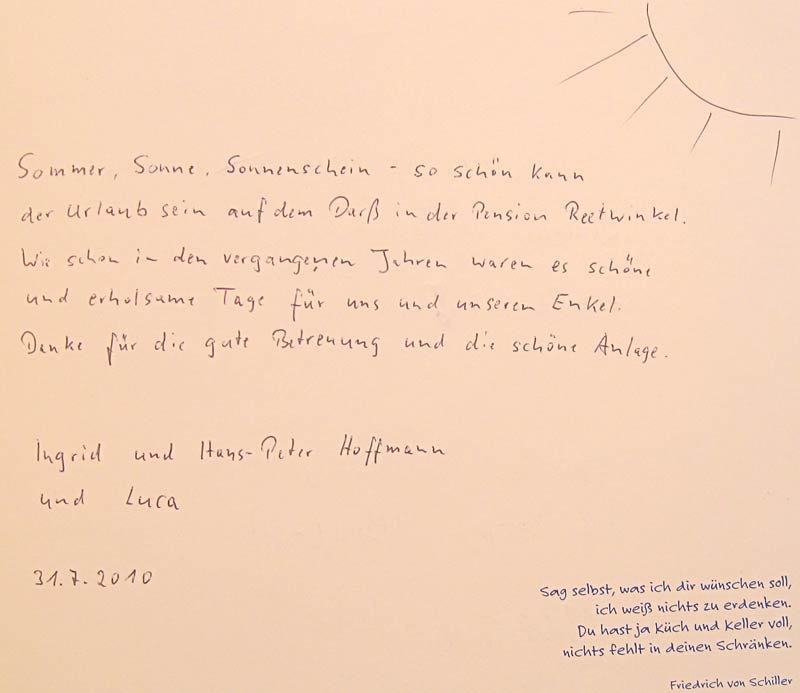 Sommer, Sonne, Sonnenschein - so schön kann
der Urlaub sein auf dem Darß in der Pension Reetwinkel.
Wie schon in den vergangenen Jahren waren es schöne
und erholsame Tage für uns und unseren Enkel.
Danke für die gute Betreuung und die schöne Anlage.
Ingrid und Hans-Peter Hoffmann
und Luca
31.7.2010
Sag selbst, was ich dir wünschen soll,
ich weiß nichts zu erdenken.
Du hast ja Küch und Keller voll,
nichts fehlt in deinen Schränken.
Friedrich von Schiller